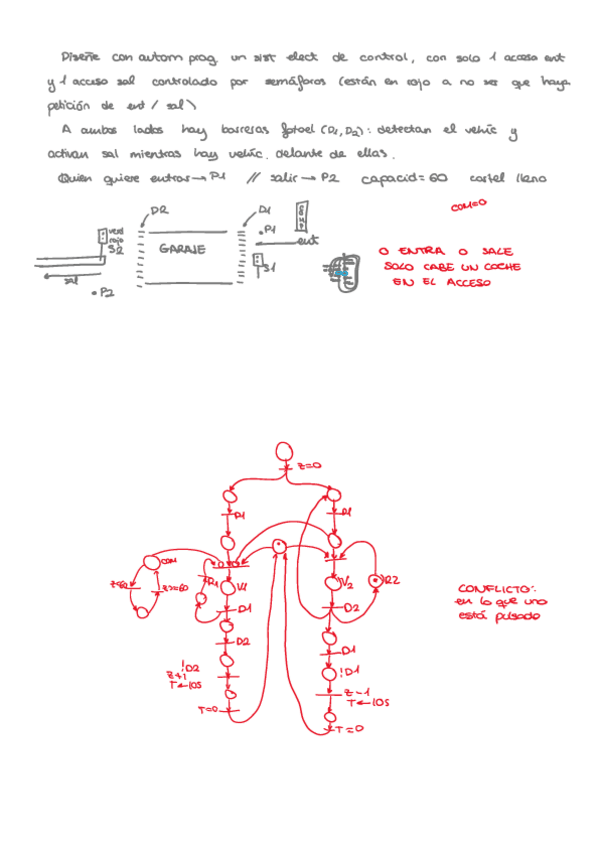 Diseñe con autom prog un sist elect de control, con solo 1 acceso ent
y 1 acceso sal controlado por semáforos (están en rojo a no ser que haya
petición de ent / sal)
A ambos lados hay barreras fotoel (D1, D2): detectan el vehíc y
activan sal mientras hay vehíc. delante de ellas.
Quien quiere entrar → P1 // salir → P2 capacid = 60 cartel lleno
COM=0
D2
D1
P1
verd
rojo
S2
GARAJE
ent
S1
sal
P2
O ENTRA O SALE
SOLO CABE UN COCHE
EN EL ACCESO
Z=0
P1
COM
Z>=60
R1
V1
V2
R2
D1
D2
CONFLICTO:
en lo que uno
está pulsado
D2
D1
!D2
!D1
Z+1
T←10S
Z-1
T←10S
T=0
T=0